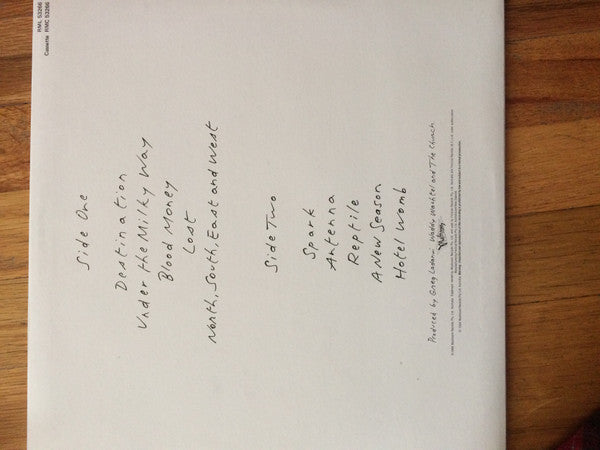 RML 53266
Cassette RMC 53266
Side One
Destination
Under the Milky Way
Blood Money
Lost
North, South, East and West
Side Two
Spark
Antenna
Reptile
A New Season
Hotel Womb
Produced by Greg Ladanyi Waddy Wachtel and The Church